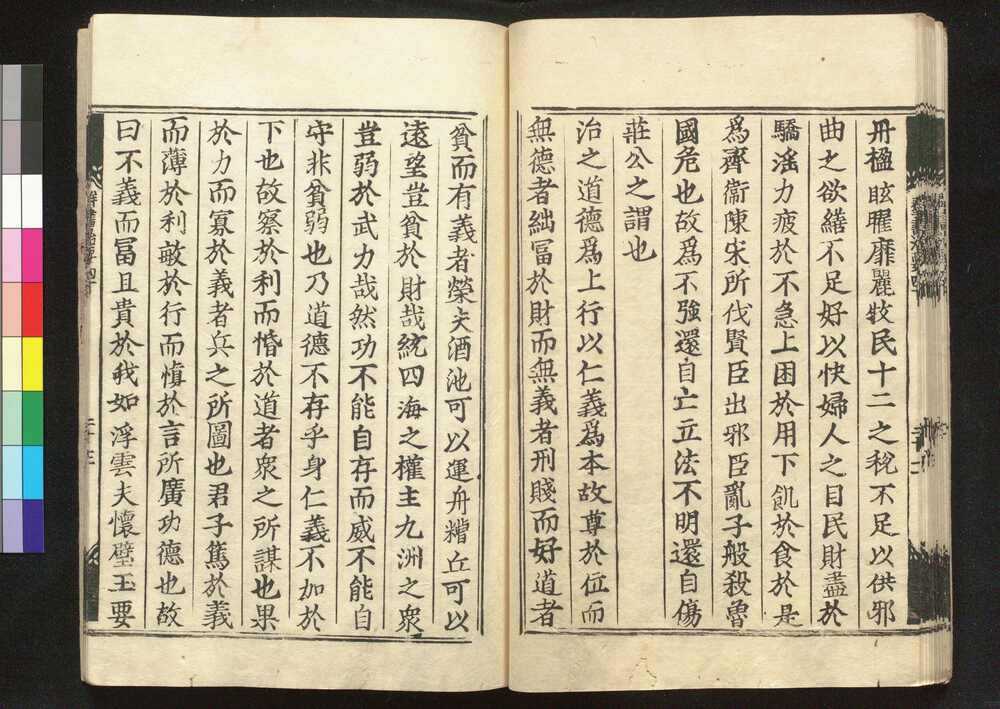 丹楹眩曜靡麗牧民十二之稅不足以供邪
曲之欲繕不足好以快婦人之目民財盡於
驕滛力疲於不急上困於用下飢於食於是
爲齊衞陳宋所伐賢臣出邪臣亂子般殺魯
國危也故爲不強還自亡立法不明還自傷
莊公之謂也
治之道德爲上行以仁義爲本故尊於位而
無德者絀冨於財而無義者刑賤而好道者
貧而有義者榮夫酒池可以運舟糟丘可以
遠望豈貧於財哉統四海之權主九洲之衆
豈弱於武力哉然功不能自存而威不能自
守非貧弱也乃道德不存乎身仁義不加於
下也故察於利而惛於道者衆之所謀也果
於力而寡於義者兵之所圖也君子篤於義
而薄於利敏於行而愼於言所廣功德也故
曰不義而冨且貴於我如浮雲夫懷璧玉要